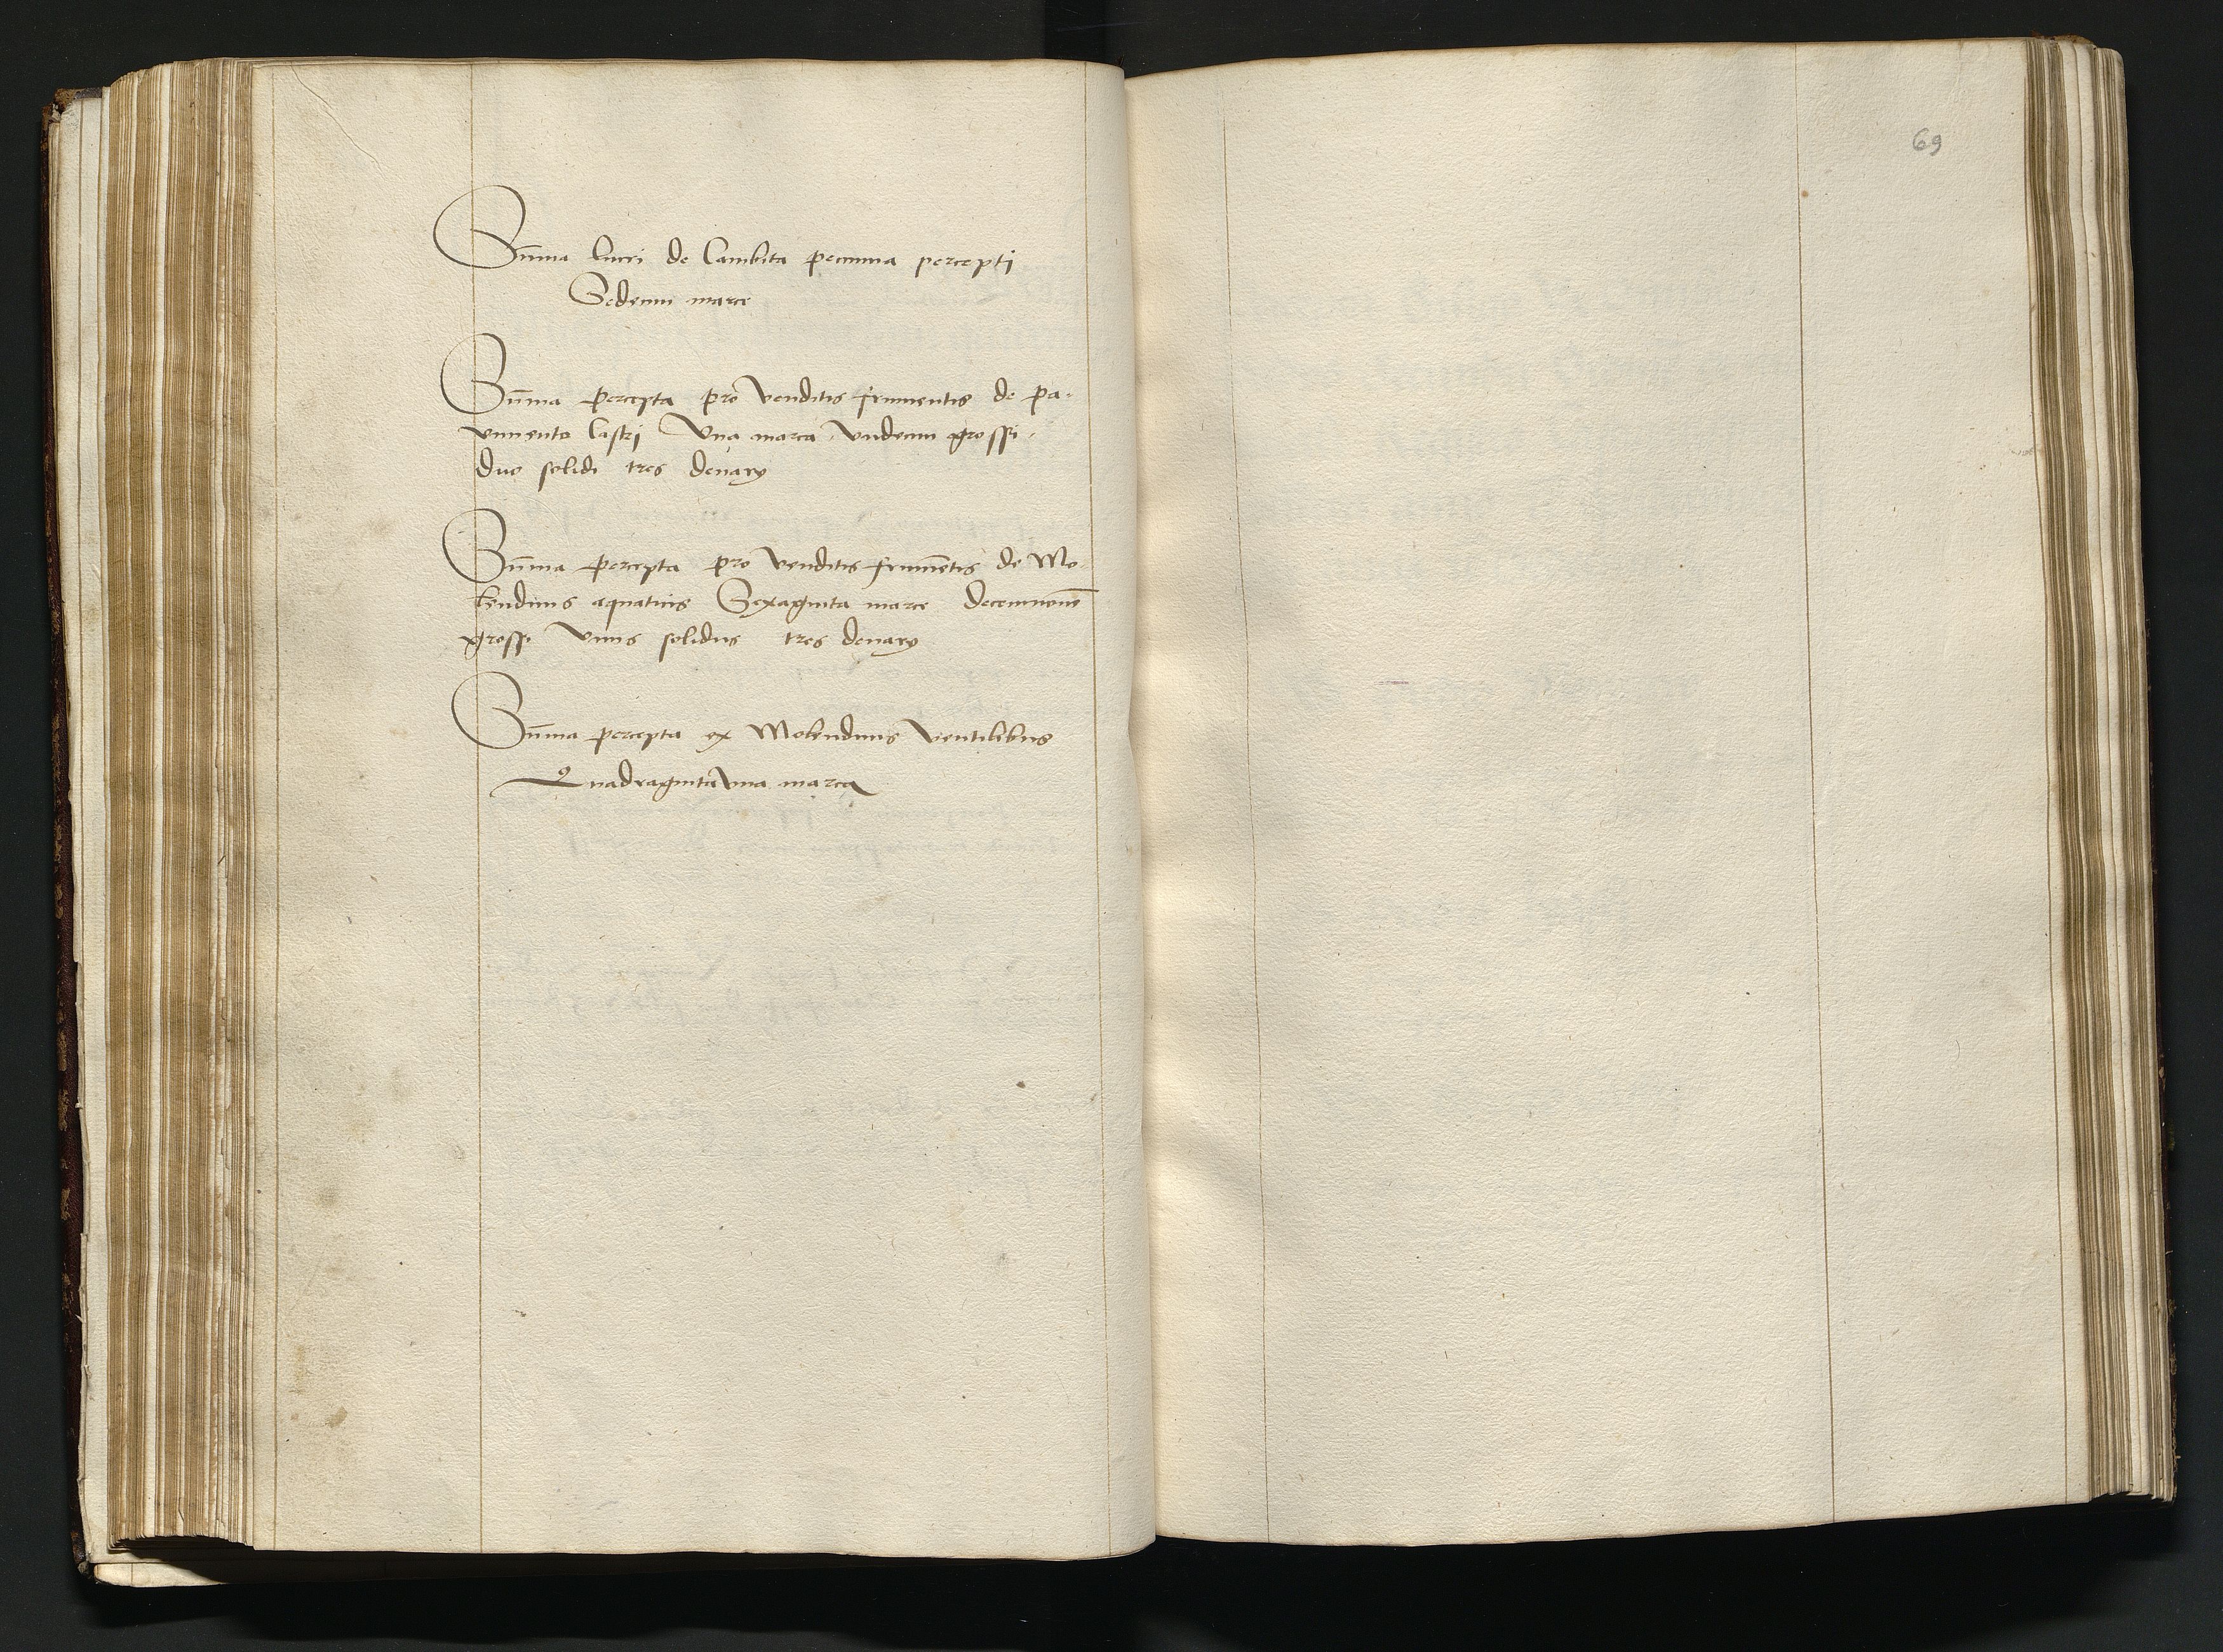 Su̅ma lucri de Cambita pecunia percepti
Sedecim marce
Su̅ma percepta pro venditis frumentis de pa-
uimento Castri Vna marca. Vndecim grossi.
duo solidi tres denarij
Su̅ma percepta pro venditis frume̅tis de Mo-
lendinis aquaticis Sexaginta marce decemnoue̅
grossi vnus solidus tres denarij
Su̅ma percepta ex Molendinis ventilibus
Quadragintavna marca
69